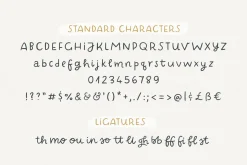 STANDARD CHARACTERS
ABCDEFGHIJKLMNOPQRSTUVWXYZ
abcdefghijklmnopqrstuvwxyz
0123456789
!?"#$%&&'()*+,./:;<=>@|¢£ß€
LIGATURES
th mo ou in so tt li gh bb ff fi fl st